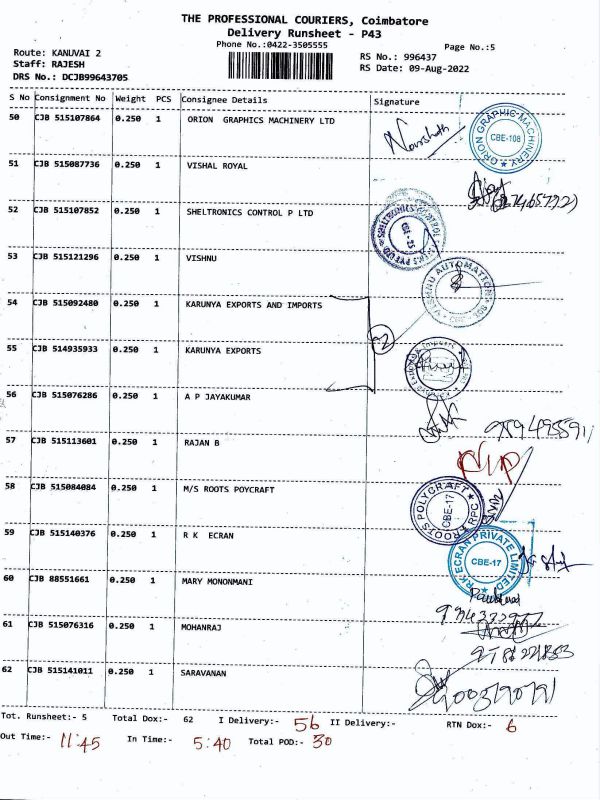 THE PROFESSIONAL COURIERS, Coimbatore
Delivery Runsheet - P43
Phone No.:0422-3505555
Page No.:5
Route: KANUVAI 2
RS No.: 996437
Staff: RAJESH
RS Date: 09-Aug-2022
DRS No.: DCJB99643705
S No Consignment No Weight PCS Consignee Details Signature
50 CJB 515107864 0.250 1 ORION GRAPHICS MACHINERY LTD
ORION GRAPHIC MACHINERY
CBE-108
51 CJB 515087736 1 0.250 VISHAL ROYAL
52 CJB 515107852 0.250 1 SHELTRONICS CONTROL P LTD
53 CJB 515121296 0.250 1 VISHNU
VISHNU AUTOMATION
54 CJB 515092480 0.250 1 KARUNYA EXPORTS AND IMPORTS
2
55 CJB 514935933 0.250 1 KARUNYA EXPORTS
56 CJB 515076286 0.250 1 A P JAYAKUMAR
57 CJB 515113601 0.250 1 RAJAN B
58 CJB 515084084 0.250 1 M/S ROOTS POYCRAFT
ROOTS POLYCRAFT
CBE-17
RPC
59 CJB 515140376 0.250 1 R K ECRAN
RK ECRAN PRIVATE LIMITED
CBE-17
60 CJB 88551661 0.250 1 MARY MONONMANI
61 CJB 515076316 0.250 1 MOHANRAJ
62 CJB 515141011 0.250 1 SARAVANAN
Tot. Runsheet:- 5 Total Dox:- 62 I Delivery:- 56 II Delivery:- RTN Dox:- 6
Out Time:- 11:45 In Time:- 5:40 Total POD:- 30